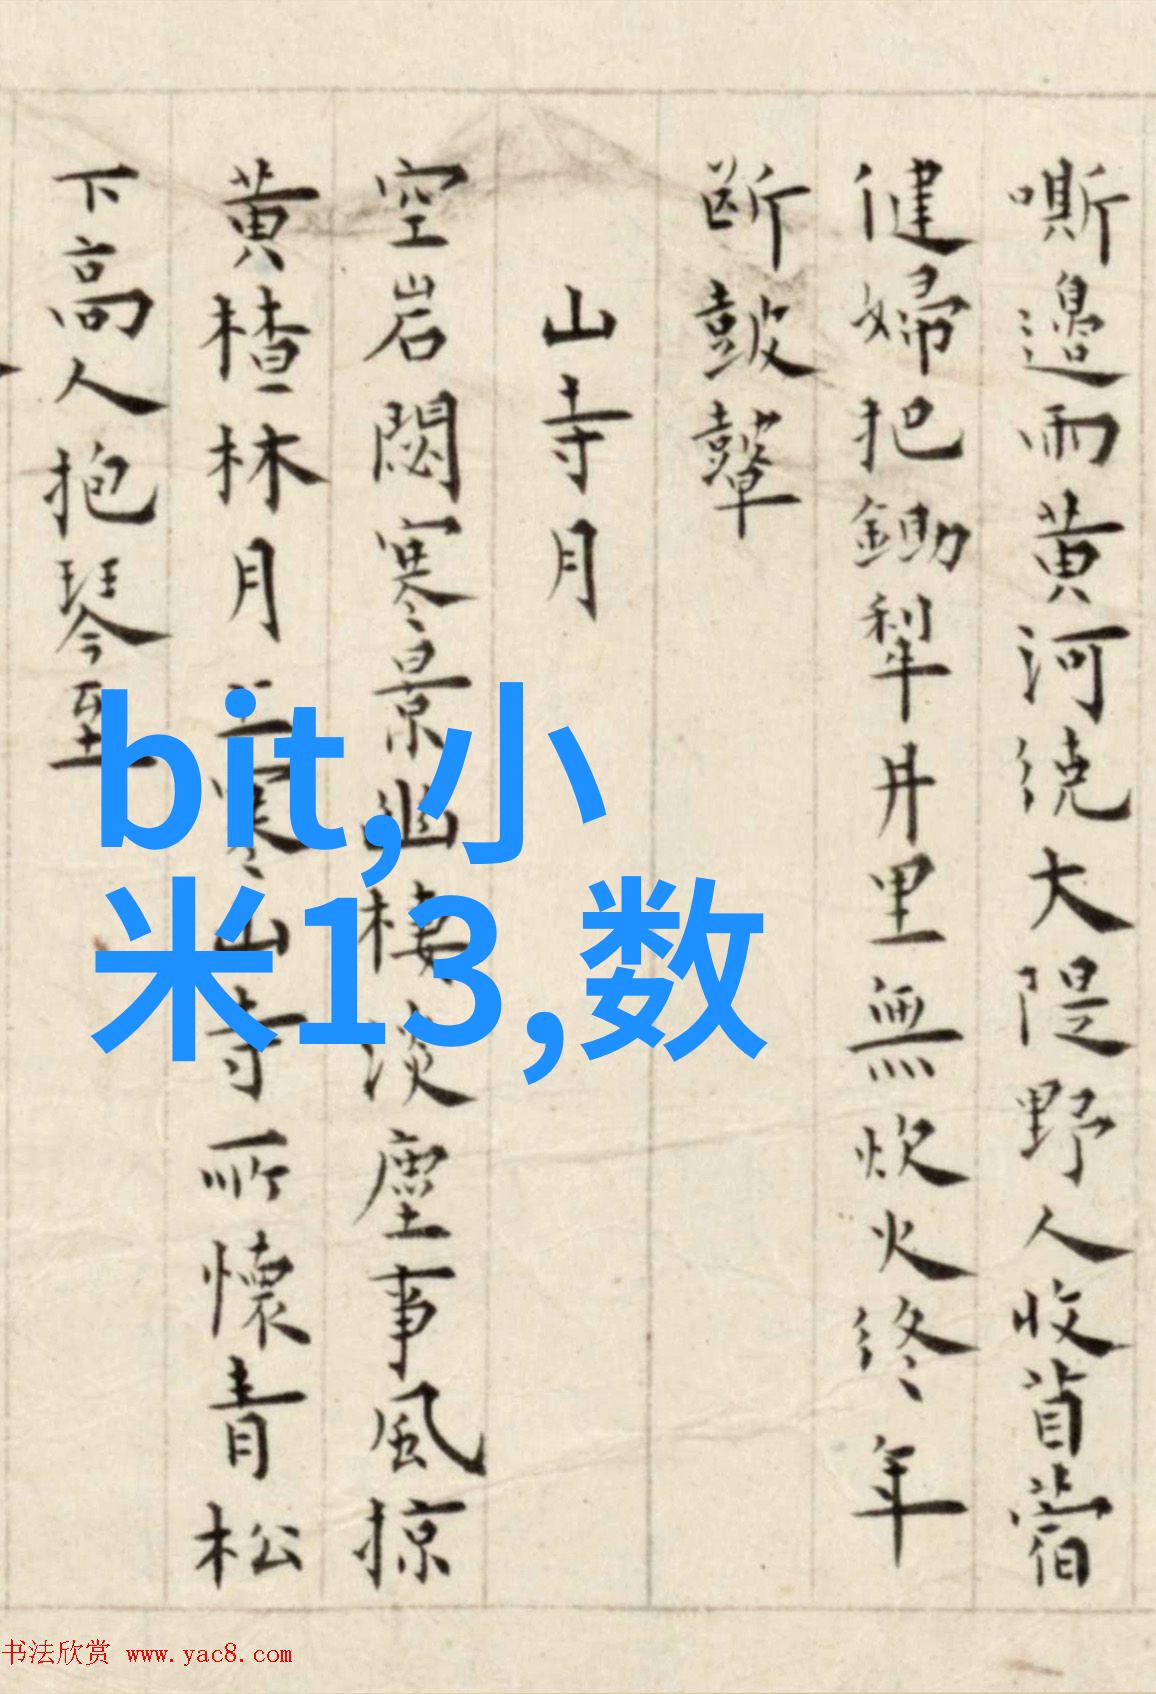 嘶邊雨黄河繞大隄野人收苜蓿
健婦把鋤犁井里無炊火終年
断鼓鼙
山寺月
空岩閟寒景幽棲淡塵事風掠
黄楂林月上寒山寺所懷青松
下高人抱琴至
bit,小
米13,数
书法欣赏 www.yac8.com